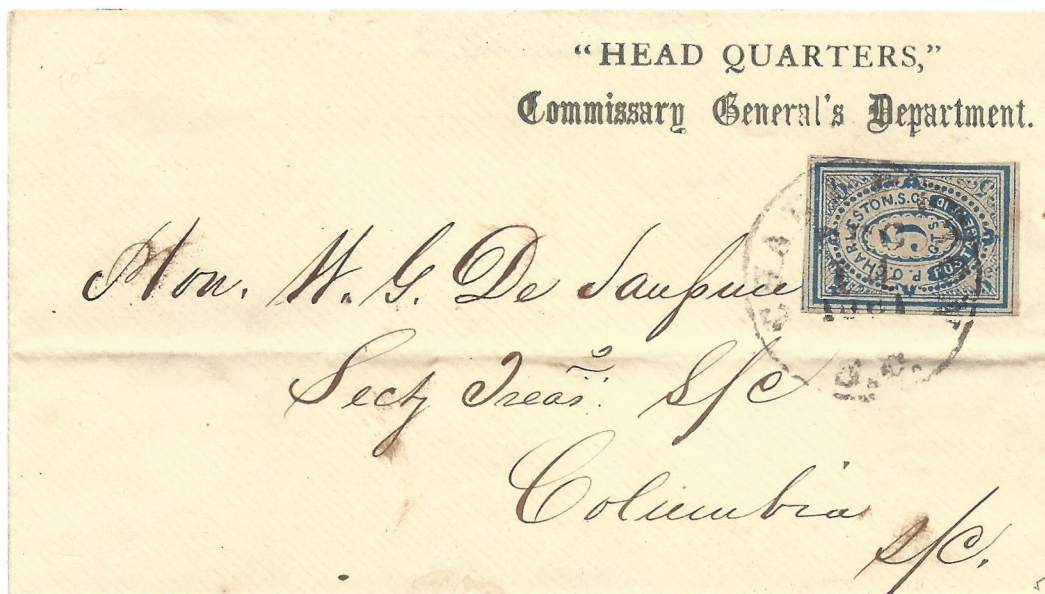 "HEAD QUARTERS,"
Commissary General's Department.
P.O. CHARLESTON. S.C.
5
Hon. W. G. De Saussure
Secty Treas. S/C
Columbia
S/C.
S.C.